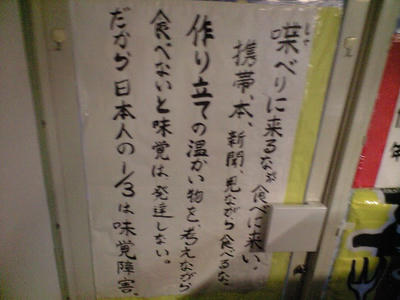 喋べりに来るな食べに来い。
携帯、本、新聞、見ながら食べるな
作り立ての温かい物を、考えながら
食べないと味覚は、発達しない。
だから日本人の1/3は味覚障害、